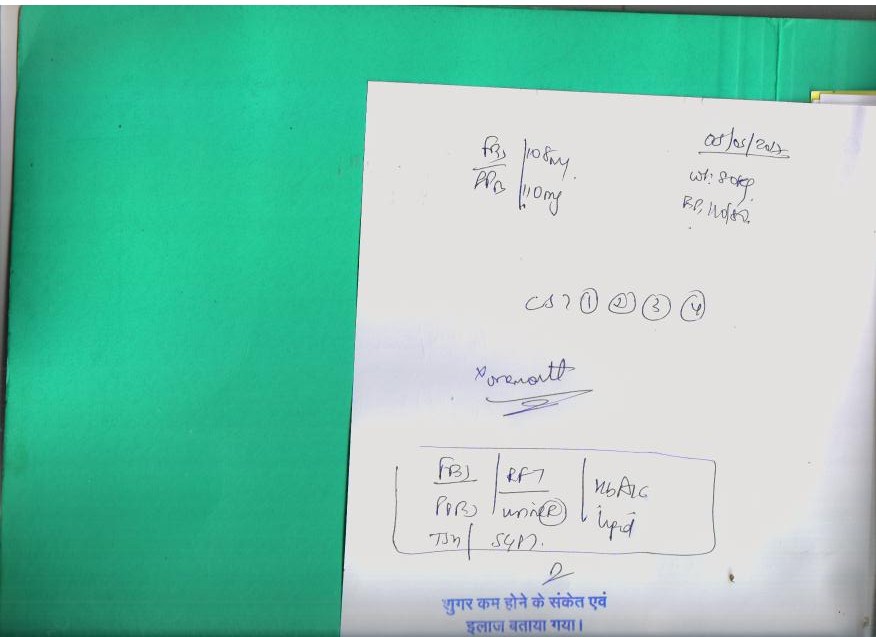 FBS 108mg
08/05/2012
PPB 110mg
wt: 80kg
BP. 110/80
CST ① ② ③ ④
x one month
FBS RFT HbA1c
PPBS urine Ⓡ lipid
TSH SGPT.
शुगर कम होने के संकेत एवं
इलाज बताया गया।